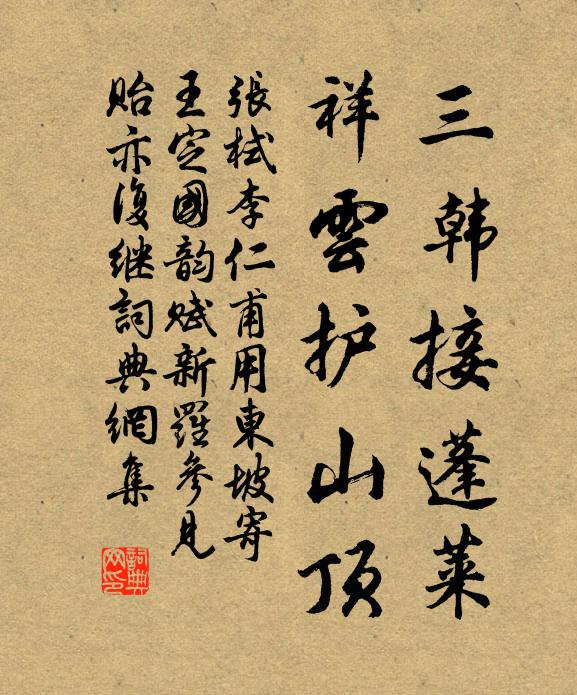 三韩接蓬莱
祥雲护山顶
張栻李仁甫用東坡寄
王定國韵赋新羅參見
贻亦復继詞典網集
詞典网印